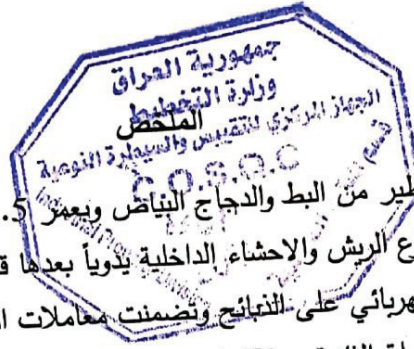 جمهورية العراق
وزارة التخطيط
الجهاز المركزي للتقييس والسيطرة النوعية
الملخص
C.O.S.Q.C
Industrial Property
قسم
طير من البط والدجاج البياض وبعمر 5.
ع الريش والاحشاء الداخلية يدوياً بعدها ق
هربائي على الذبائح وتضمنت معاملات ا